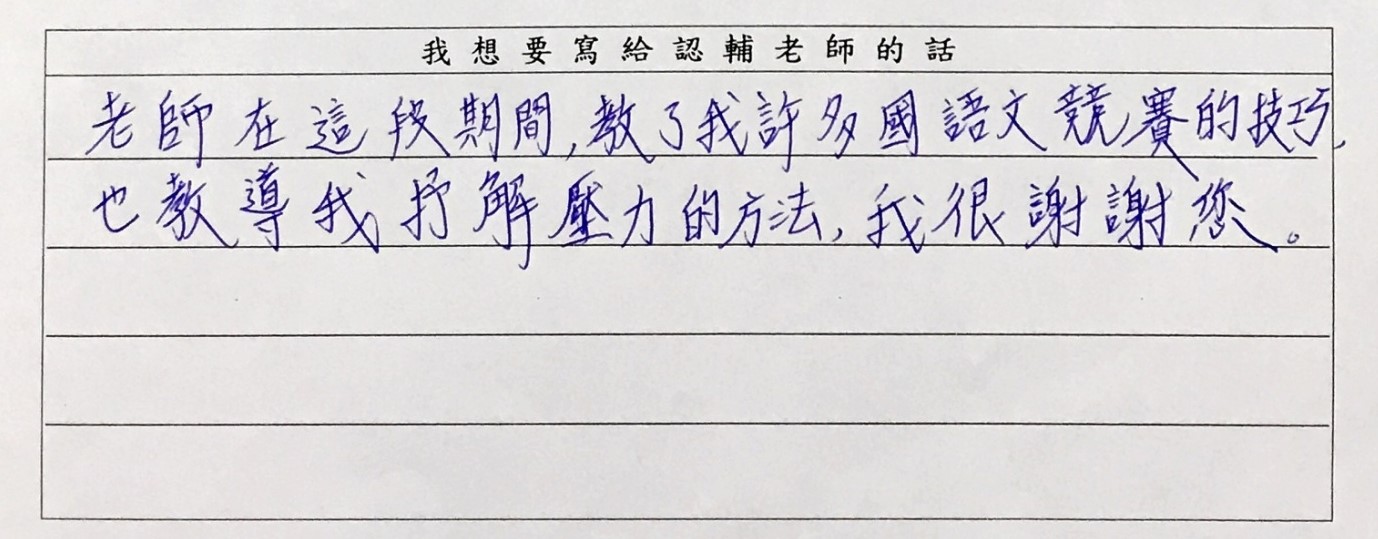 我想要寫給認輔老師的話
老師在這段期間,教了我許多國語文競賽的技巧,
也教導我抒解壓力的方法,我很謝謝您。